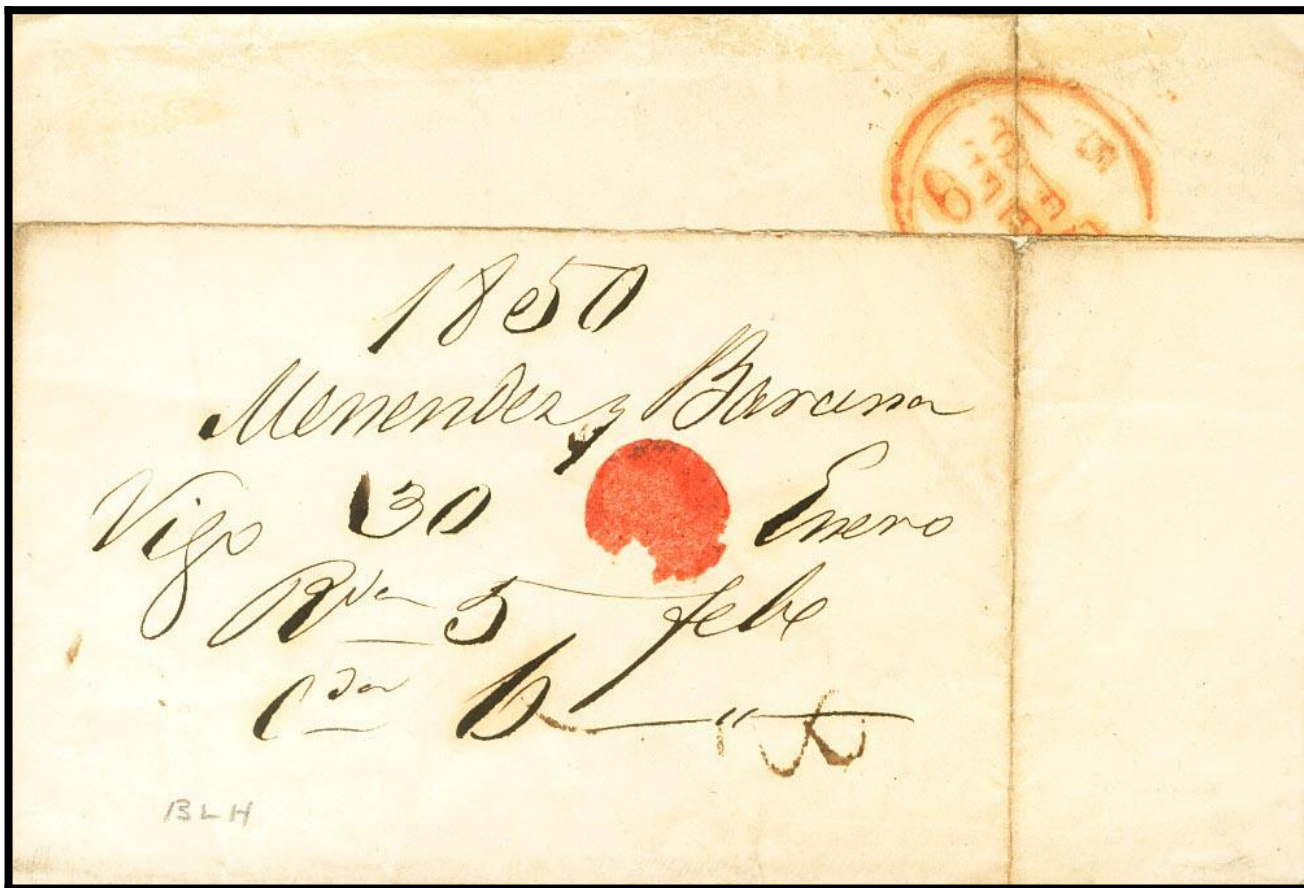 1850
Menendez y Barcena
Vigo 30 Enero
Rda 5 feb
Cda 6 "
BLH